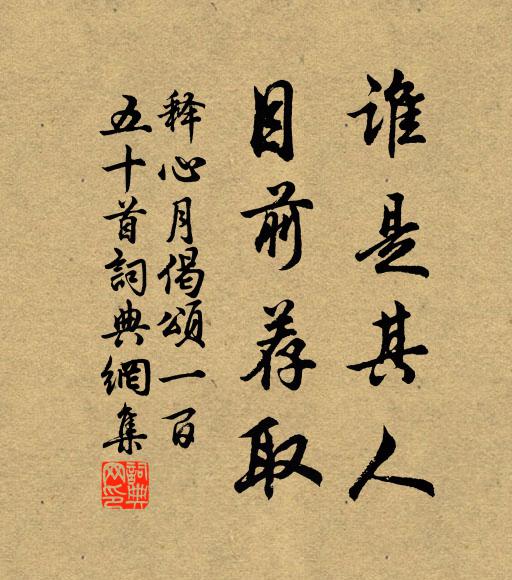 谁是其人
目前荐取
释心月偈頌一百
五十首詞典網集
詞典网印